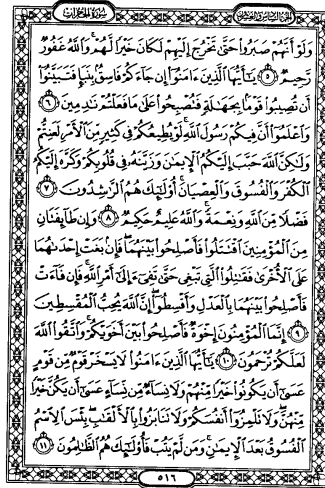 سورة الحجرات
الجزء السادس والعشرون
وَلَوْ أَنَّهُمْ صَبَرُوا۟ حَتَّىٰ تَخْرُجَ إِلَيْهِمْ لَكَانَ خَيْرًا لَّهُمْ ۚ وَٱللَّهُ غَفُورٌ
رَّحِيمٌ ٥ يَـٰٓأَيُّهَا ٱلَّذِينَ ءَامَنُوٓا۟ إِن جَآءَكُمْ فَاسِقٌۢ بِنَبَإٍ فَتَبَيَّنُوٓا۟
أَن تُصِيبُوا۟ قَوْمًۢا بِجَهَـٰلَةٍ فَتُصْبِحُوا۟ عَلَىٰ مَا فَعَلْتُمْ نَـٰدِمِينَ ٦
وَٱعْلَمُوٓا۟ أَنَّ فِيكُمْ رَسُولَ ٱللَّهِ ۚ لَوْ يُطِيعُكُمْ فِى كَثِيرٍ مِّنَ ٱلْأَمْرِ لَعَنِتُّمْ
وَلَـٰكِنَّ ٱللَّهَ حَبَّبَ إِلَيْكُمُ ٱلْإِيمَـٰنَ وَزَيَّنَهُۥ فِى قُلُوبِكُمْ وَكَرَّهَ إِلَيْكُمُ
ٱلْكُفْرَ وَٱلْفُسُوقَ وَٱلْعِصْيَانَ ۚ أُو۟لَـٰٓئِكَ هُمُ ٱلرَّٰشِدُونَ ٧
فَضْلًا مِّنَ ٱللَّهِ وَنِعْمَةً ۚ وَٱللَّهُ عَلِيمٌ حَكِيمٌ ٨ وَإِن طَآئِفَتَانِ
مِنَ ٱلْمُؤْمِنِينَ ٱقْتَتَلُوا۟ فَأَصْلِحُوا۟ بَيْنَهُمَا ۖ فَإِنۢ بَغَتْ إِحْدَىٰهُمَا
عَلَى ٱلْأُخْرَىٰ فَقَـٰتِلُوا۟ ٱلَّتِى تَبْغِى حَتَّىٰ تَفِىٓءَ إِلَىٰٓ أَمْرِ ٱللَّهِ ۚ فَإِن فَآءَتْ
فَأَصْلِحُوا۟ بَيْنَهُمَا بِٱلْعَدْلِ وَأَقْسِطُوٓا۟ ۖ إِنَّ ٱللَّهَ يُحِبُّ ٱلْمُقْسِطِينَ
٩ إِنَّمَا ٱلْمُؤْمِنُونَ إِخْوَةٌ فَأَصْلِحُوا۟ بَيْنَ أَخَوَيْكُمْ ۚ وَٱتَّقُوا۟ ٱللَّهَ
لَعَلَّكُمْ تُرْحَمُونَ ١٠ يَـٰٓأَيُّهَا ٱلَّذِينَ ءَامَنُوا۟ لَا يَسْخَرْ قَوْمٌ مِّن قَوْمٍ
عَسَىٰٓ أَن يَكُونُوا۟ خَيْرًا مِّنْهُمْ وَلَا نِسَآءٌ مِّن نِّسَآءٍ عَسَىٰٓ أَن يَكُنَّ خَيْرًا
مِّنْهُنَّ ۖ وَلَا تَلْمِزُوٓا۟ أَنفُسَكُمْ وَلَا تَنَابَزُوا۟ بِٱلْأَلْقَـٰبِ ۖ بِئْسَ ٱلِٱسْمُ
ٱلْفُسُوقُ بَعْدَ ٱلْإِيمَـٰنِ ۚ وَمَن لَّمْ يَتُبْ فَأُو۟لَـٰٓئِكَ هُمُ ٱلظَّـٰلِمُونَ ١١
٥١٦